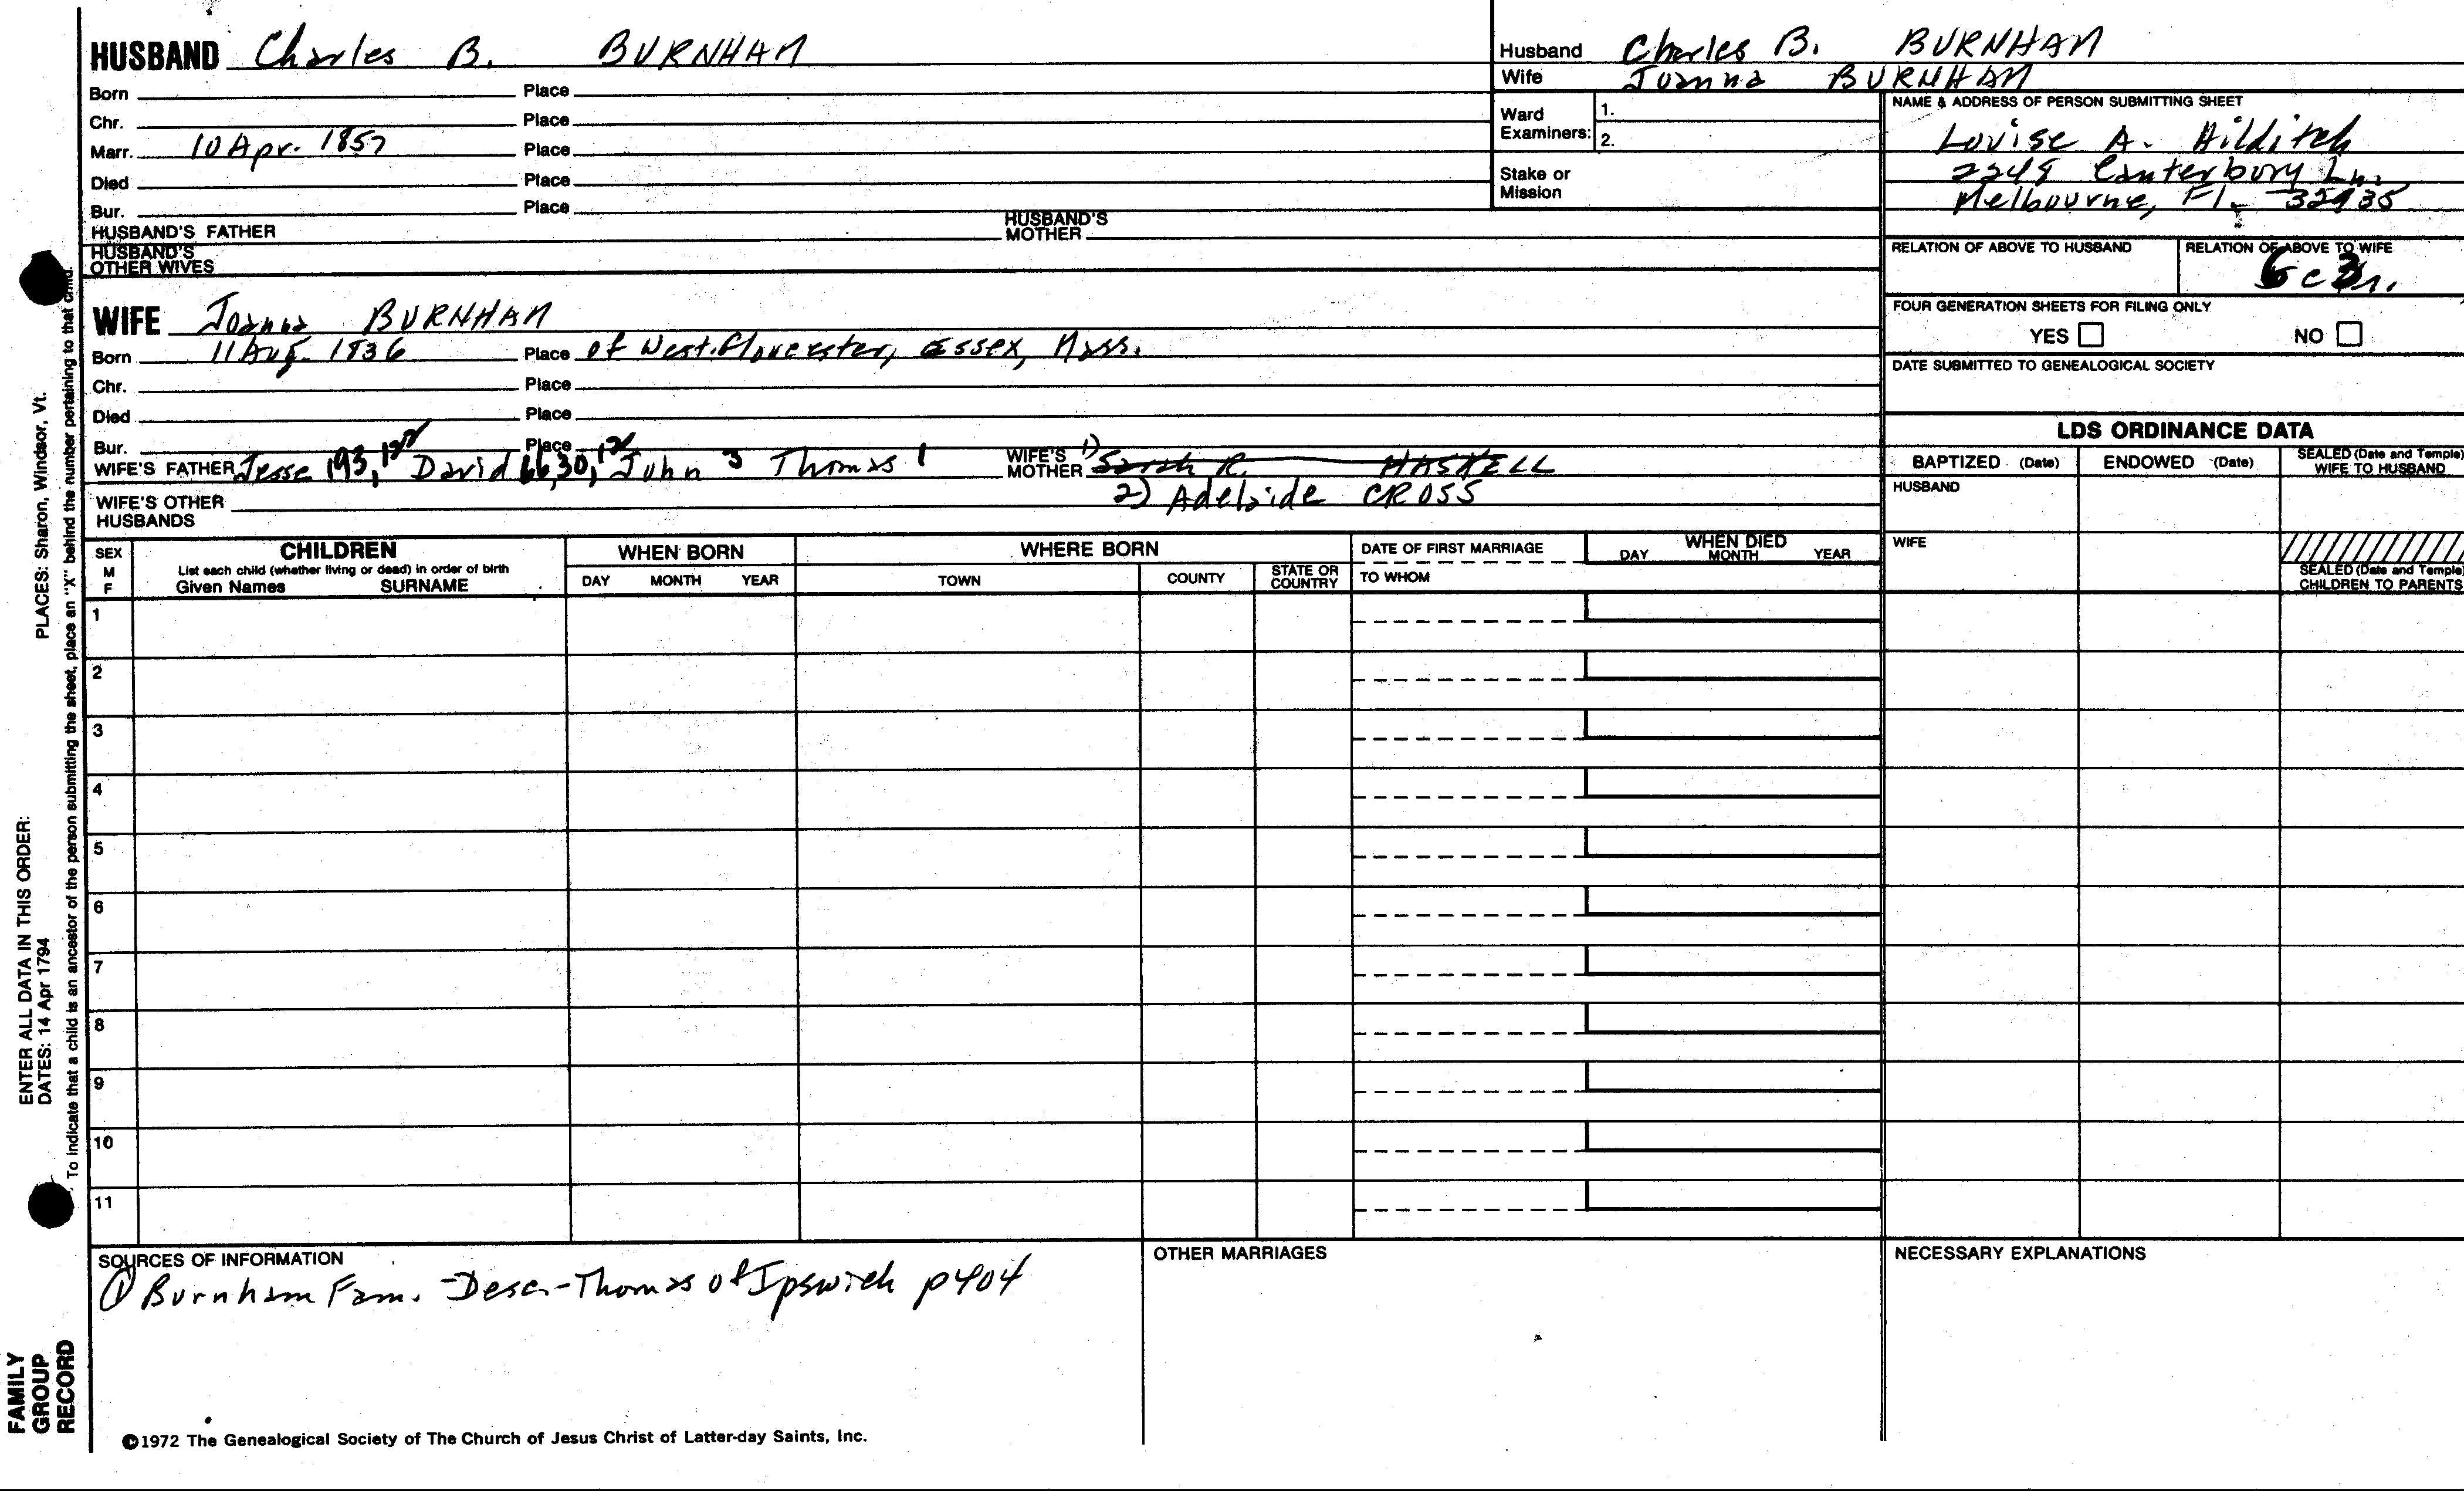 HUSBAND Charles B. BURNHAM
Born Place
Chr. Place
Marr. 10 Apr. 1857 Place
Died Place
Bur. Place
HUSBAND'S FATHER HUSBAND'S MOTHER
HUSBAND'S OTHER WIVES
Husband Charles B. BURNHAM
Wife Joanna BURNHAM
Ward Examiners: 1.
2.
Stake or Mission
NAME & ADDRESS OF PERSON SUBMITTING SHEET
Louise A. Hilditch
2249 Canterbury Ln.
Melbourne, Fl. 32935
RELATION OF ABOVE TO HUSBAND RELATION OF ABOVE TO WIFE
FOUR GENERATION SHEETS FOR FILING ONLY
YES NO
DATE SUBMITTED TO GENEALOGICAL SOCIETY
WIFE Joanna BURNHAM
Born 11 Aug. 1836 Place of West. Gloucester, Essex, Mass.
Chr. Place
Died Place
Bur. Place
WIFE'S FATHER Jesse 193, David 66, 30, John 3 Thomas 1 WIFE'S MOTHER 1) Sarah R. HASKELL
2) Adelaide CROSS
WIFE'S OTHER HUSBANDS
LDS ORDINANCE DATA
BAPTIZED (Date) ENDOWED (Date) SEALED (Date and Temple) WIFE TO HUSBAND
HUSBAND
WIFE
SEALED (Date and Temple) CHILDREN TO PARENTS
SEX M F
CHILDREN
List each child (whether living or dead) in order of birth
Given Names SURNAME
WHEN BORN
DAY MONTH YEAR
WHERE BORN
TOWN COUNTY STATE OR COUNTRY
DATE OF FIRST MARRIAGE
TO WHOM
WHEN DIED
DAY MONTH YEAR
1
2
3
4
5
6
7
8
9
10
11
SOURCES OF INFORMATION
① Burnham Fam. - Desc. - Thomas of Ipswich p404
OTHER MARRIAGES
NECESSARY EXPLANATIONS
©1972 The Genealogical Society of The Church of Jesus Christ of Latter-day Saints, Inc.
FAMILY GROUP RECORD
ENTER ALL DATA IN THIS ORDER:
DATES: 14 Apr 1794
PLACES: Sharon, Windsor, Vt.
To indicate that a child is an ancestor of the person submitting the sheet, place an "X" behind the number pertaining to that child.